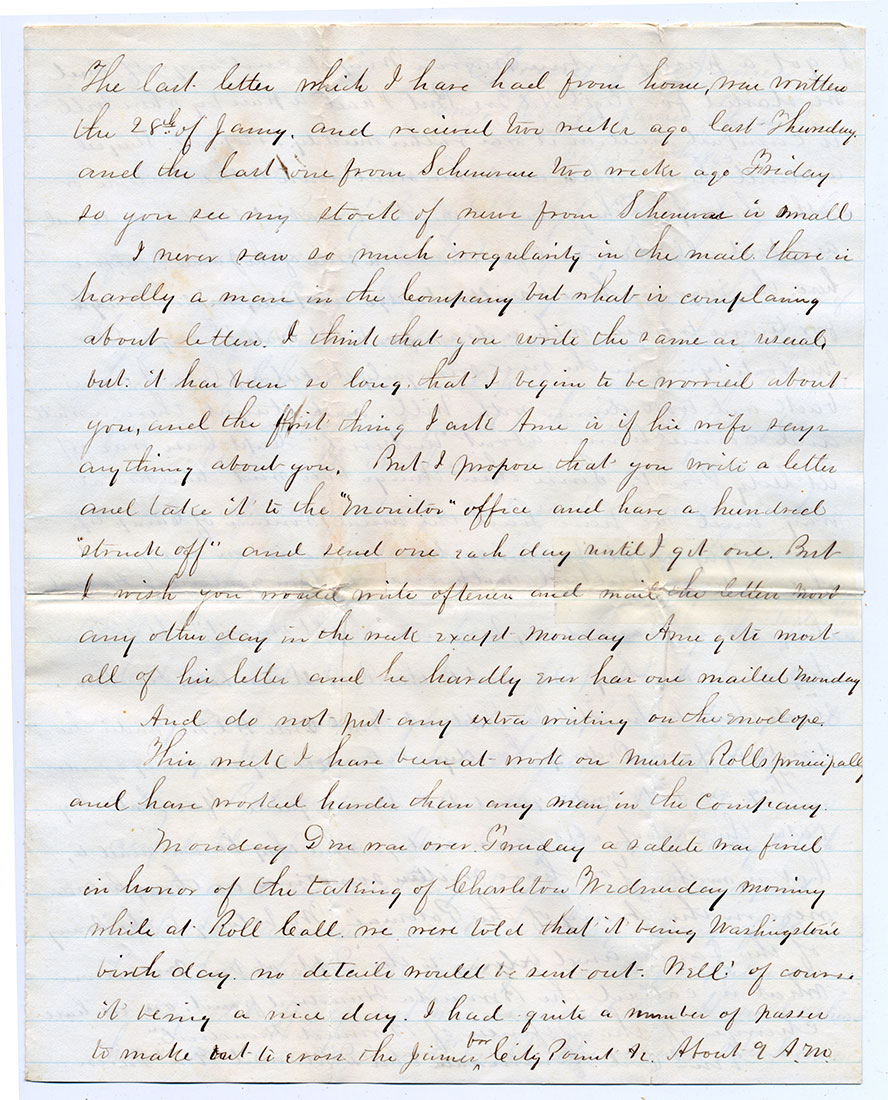 The last letter which I have had from home, was written
the 28th of Jany. and recieved two weeks ago last Thursday.
and the last one from Schenevus two weeks ago Friday
so you see my stock of news from Schenevus is small
I never saw so much irregularity in the mail. there is
hardly a man in the Company but what is complaing
about letters. I think that you write the same as usual,
but. it has been so long, that I begin to be worried about
you, and the first thing I ask Ame is if his wife says
anything about you. But I propose that you write a letter
and take it to the "Monitor" office and have a hundred
"struck off" and send one each day until I get one. But
I wish you would write oftener and mail the letters most
any other day in the week except Monday Ame gets most
all of his letters and he hardly ever has one mailed Monday
And do not put any extra writing on the envelope.
This week I have been at work on Muster Rolls principally
and have worked harder than any man in the Company.
Monday was over. Tuesday a salute was fired
in honor of the taking of Charleston Wednesday morning
while at Roll Call. we were told that it being Washingtons
birth day. no details would be sent out. Well! of course
it being a nice day. I had quite a number of passes
to make out to cross the James for City Point &c. About 9 A.M.